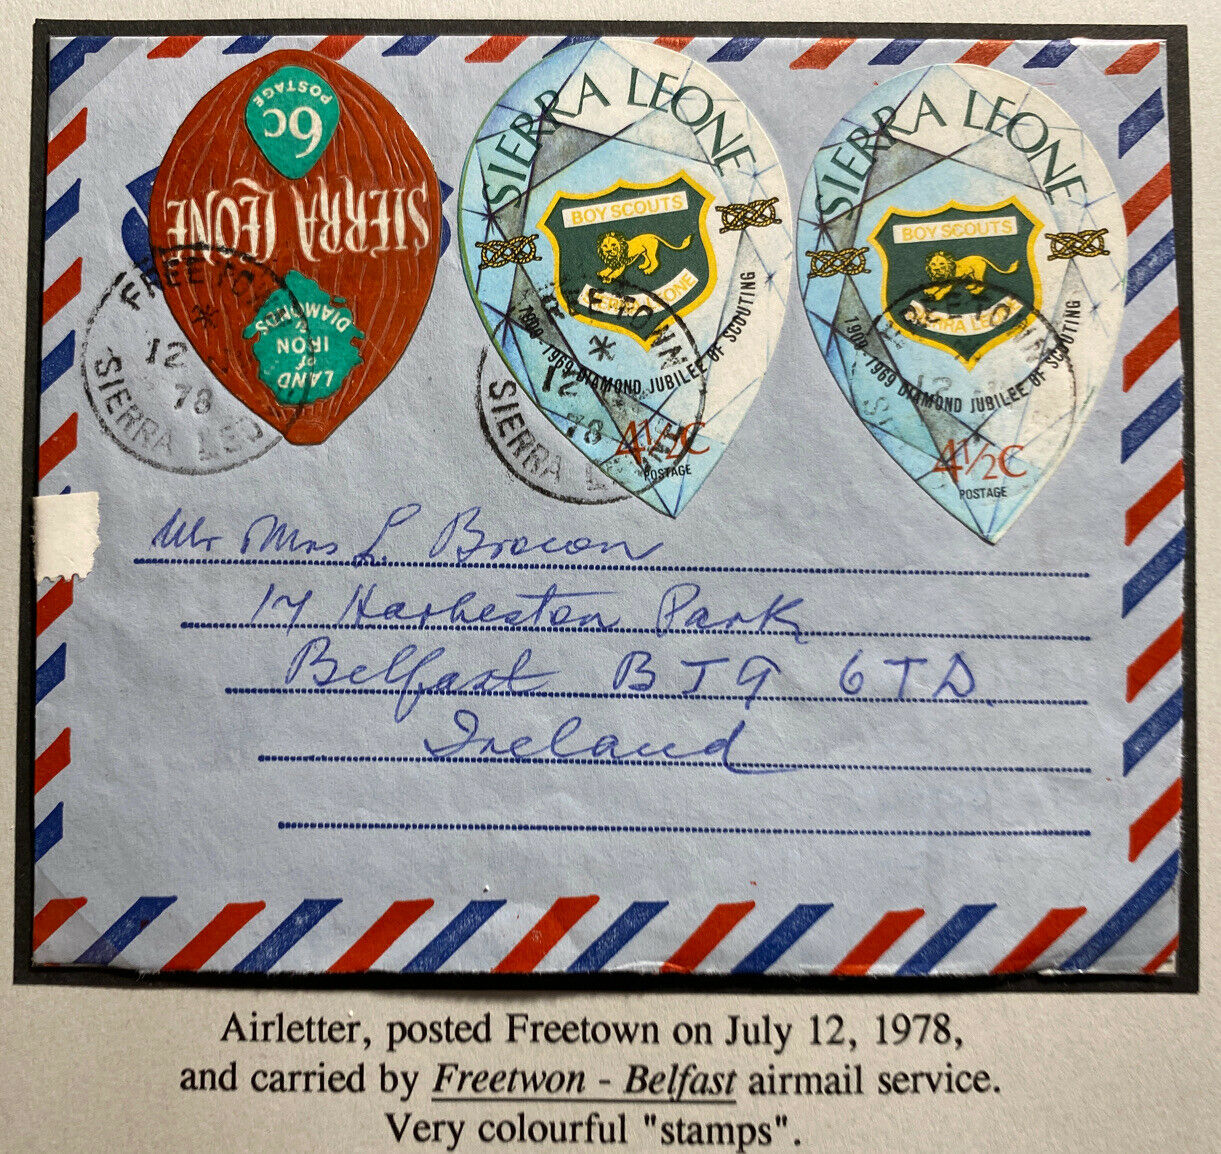 6c
POSTAGE
SIERRA LEONE
LAND
of
IRON
&
DIAMONDS
FREETOWN
*
12
78
SIERRA LE
SIERRA LEONE
BOY SCOUTS
SIERRA LEONE
1909-1969 DIAMOND JUBILEE OF SCOUTING
4½C
POSTAGE
FREETOWN
*
12
78
SIERRA
SIERRA LEONE
BOY SCOUTS
SIERRA LEONE
1909-1969 DIAMOND JUBILEE OF SCOUTING
4½C
POSTAGE
12
Mr Mrs L. Brown
17 Harbeston Park
Belfast BT9 6TD
Ireland
Airletter, posted Freetown on July 12, 1978,
and carried by Freetwon - Belfast airmail service.
Very colourful "stamps".